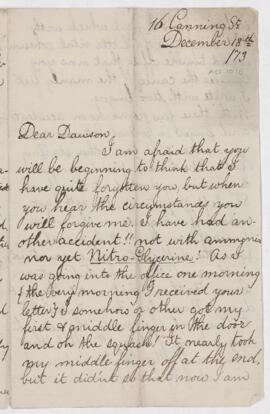 16 Canning St
December 18th
/73
Dear Dawson,
I am afraid that you
will be beginning to think that I
have quite forgotten you, but when
you hear the circumstances you
will forgive me. I have had an-
other accident!! not with ammonia
nor yet Nitro-Glycerine! As I
was going into the office one morning
(the very morning I received your
letter) I somehow or other got my
first & middle finger in the door
and oh the squash! It nearly took
my middle finger off at the end,
but it didn't so that now I am